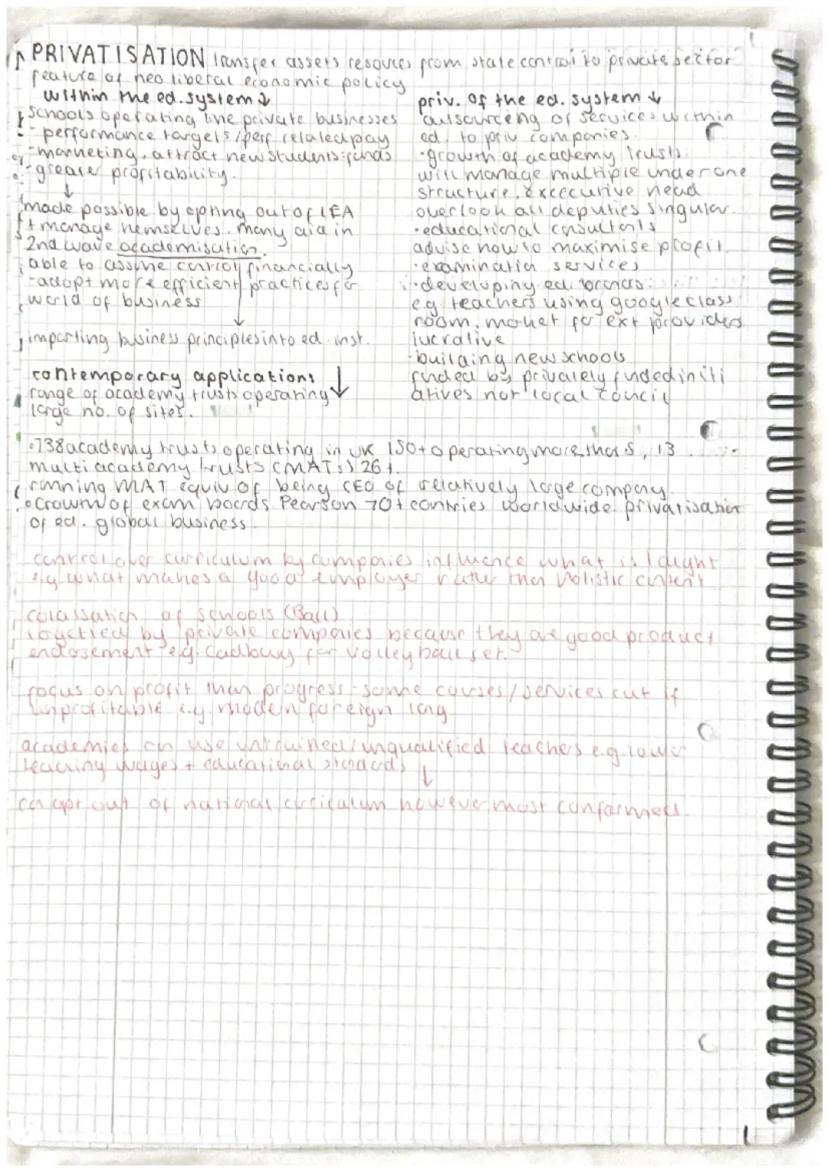 PRIVATISATION transfer assets resources from state control to private sector
feature of neo liberal economic policy
within the ed. system ↓
schools operating like private businesses
- performance targets / perf related pay
- marketing, attract new students: funds
- greater profitability.
↓
made possible by opting out of LEA
+ manage themselves. many did in
2nd wave academisation.
able to assume control financially
- adopt more efficient practices for
world of business
↓
importing business principles into ed. inst.
contemporary applications ↓
range of academy trusts operating
large no. of sites.
priv. of the ed. system ↓
outsourcing of services within
ed to priv companies.
· growth of academy trusts:
will manage multiple under one
structure, excecutive head
overlook all deputies singular.
· educational consultants
advise how to maximise profit
· examination services
· developing ed brands:
eg teachers using google class
room, market for ext providers
lucrative
· building new schools
funded by privately funded initi
atives not local council
· 738 academy trusts operating in UK 150+ operating more than 5, 13
multi academy trusts (MATs) 26+.
running MAT equiv of being CEO of relatively large company.
· Growth of exam boards Pearson 70+ contries worldwide privatisation
of ed. global business.
control over curriculum by companies influence what is taught
e.g what makes a good employer rather than holistic content.
colalisation of schools (Ball)
targeted by private companies because they are good product
endosement e.g. Cadbury for volleyball set.
focus on profit than progress - some courses/services cut if
unprofitable e.g modern foreign lang
academies can use untrained/unqualified teachers e.g lower
teaching wages + educational standards
↓
can opt out of national curriculum however most conform